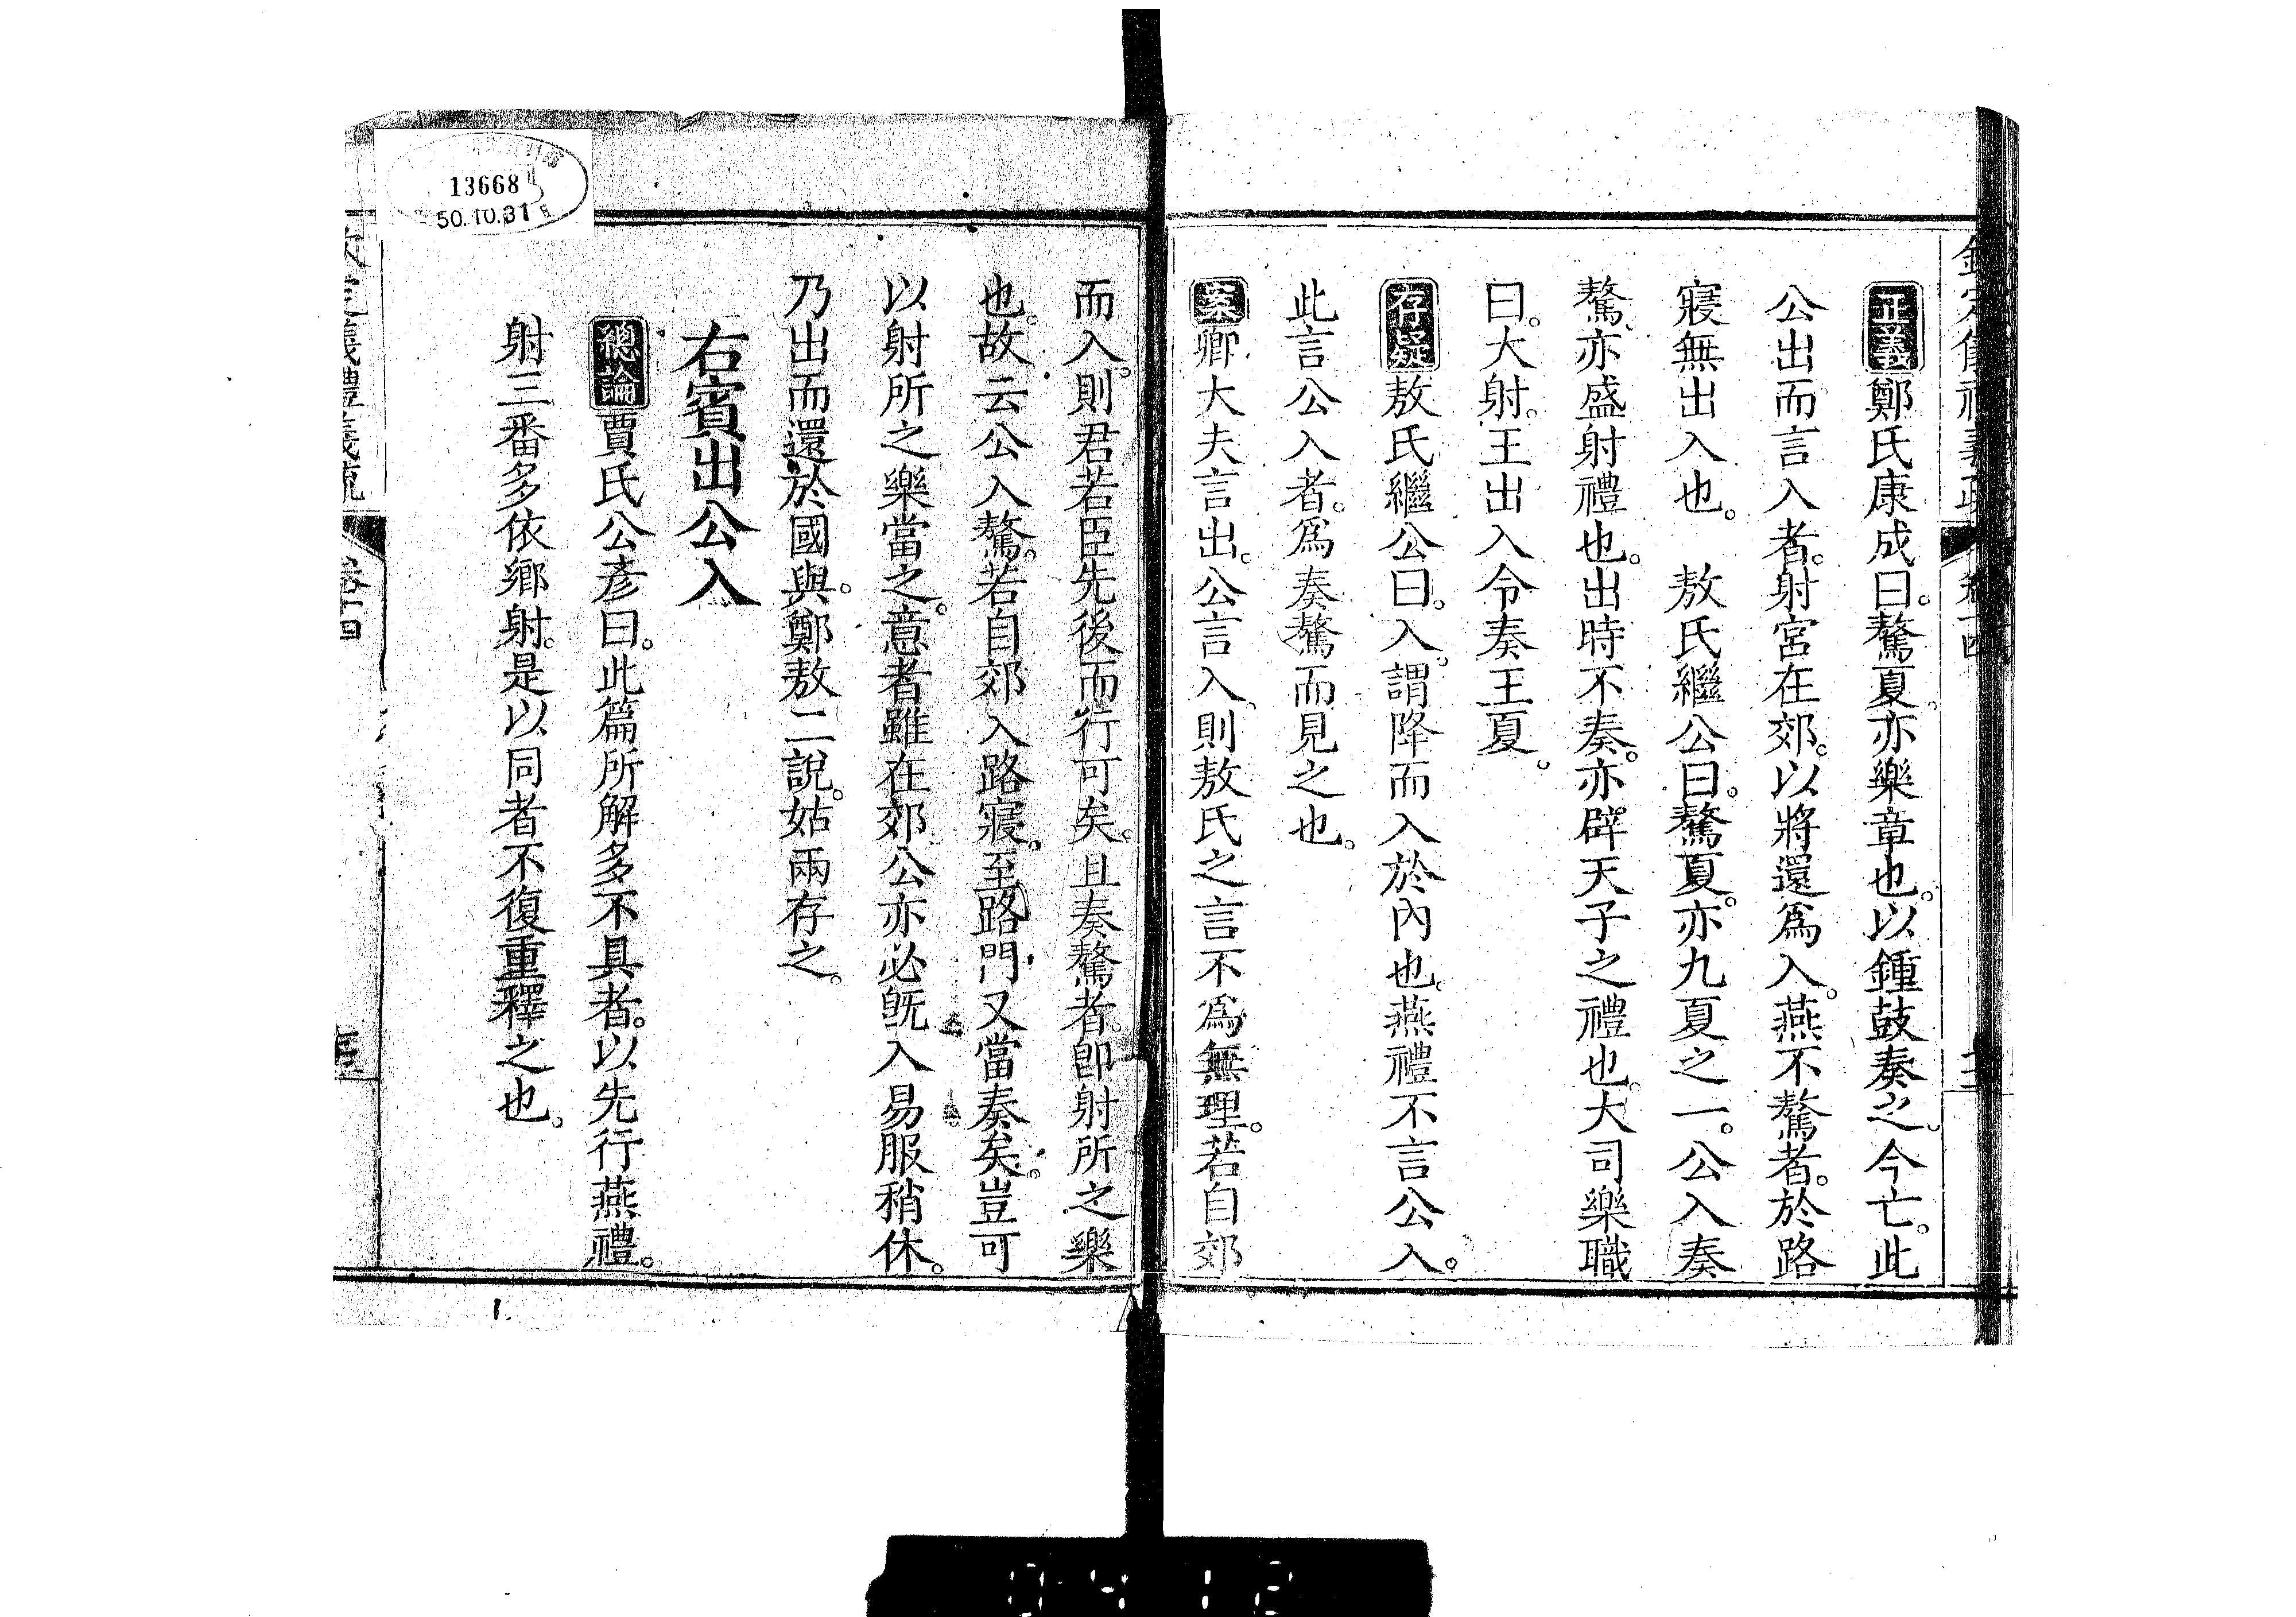 正義鄭氏康成曰。驁夏。亦樂章也。以鍾鼓奏之。今亡。此
公出而言入者。射宮在郊。以將還爲入。燕不驁者。於路
寢無出入也。　敖氏繼公曰。驁夏。亦九夏之一。公入奏
驁。亦盛射禮也。出時不奏。亦辟天子之禮也。大司樂職
曰。大射。王出入令奏王夏。
存疑敖氏繼公曰。入。謂降而入於內也。燕禮不言公入。
此言公入者。爲奏驁而見之也。
案卿大夫言出。公言入。則敖氏之言不爲無理。若自郊
而入。則君若臣先後而行可矣。且奏驁者。卽射所之樂
也。故云公入驁。若自郊入路寢。至路門又當奏矣。豈可
以射所之樂當之。意者雖在郊。公亦必旣入易服稍休。
乃出而還於國與。鄭敖二說。姑兩存之。
右賓出公入
總論賈氏公彥曰。此篇所解多不具者。以先行燕禮。
射三番多依鄉射。是以同者不復重釋之也。
13668
50.10.31